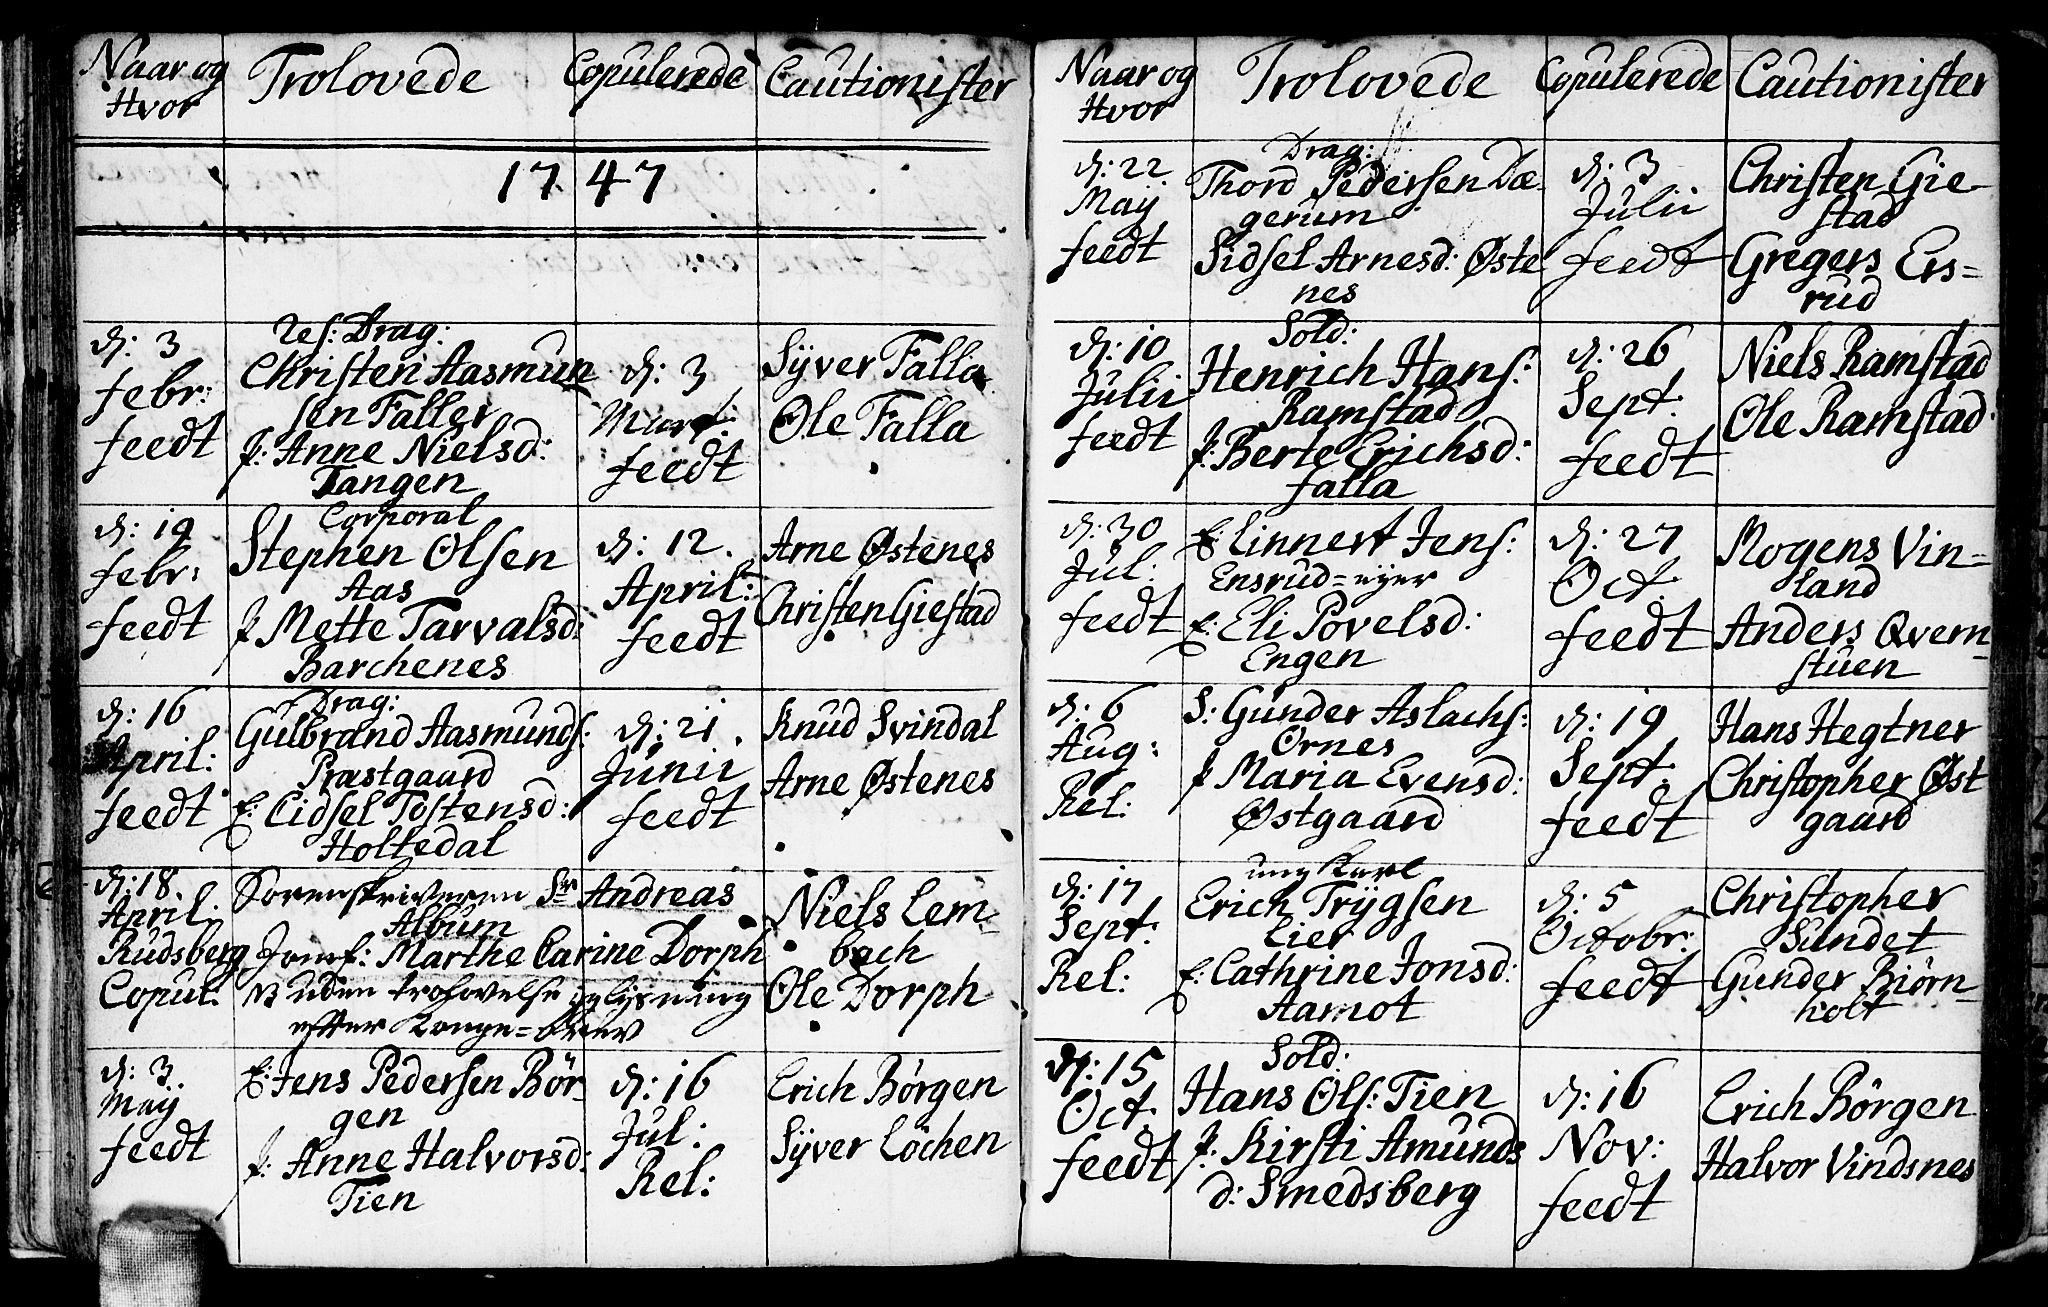 Naar og
Hvor
Trolovede
Copulerede
Cautionister
1747
d: 3
febr:
feedt
Res: Drag:
Christen Aasmun
sen Faller
P: Anne Nielsd:
Tangen
d: 3
Mart:
feedt
Syver Falla
Ole Falla
d: 19
febr:
feedt
Corporal
Stephen Olsen
Aas
P Mette Tarvalsd:
Barchenes
d: 12.
April:
feedt
Arne Østenes
Christen Giestad
d: 16
April:
feedt
Drag:
Gulbrand Aasmunds:
Præstgaard
E: Cidsel Tostensd:
Holtedal
d: 21.
Junii
feedt
Knud Svindal
Arne Østenes
d: 18.
April:
Rudsberg
Copul:
Sorenskriveren Sr Andreas
Album
Jomf: Marthe Carine Dorph
NB uden trolovelse og lysning
efter Konge=brev
Niels Lem-
bach
Ole Dorph
d: 3.
May
feedt
E: Jens Pedersen Bör-
gen
P: Anne Halvorsd:
Tien
d: 16
Jul:
Rel:
Erich Börgen
Syver Löchen
Naar og
Hvor
Trolovede
Copulerede
Cautionister
d: 22
May
feedt
Drag:
Thord Pedersen Dæ-
gerum
Sidsel Arnesd: Øste
nes
d: 3
Julii
feedt
Christen Gie-
stad
Gregers Ers=
rud
d: 10
Julii
feedt
Sold:
Henrich Hans:
Ramstad
P: Berte Erichsd:
Falla
d: 26
Sept:
feedt
Niels Ramstad
Ole Ramstad
d: 30
Jul:
feedt
E: Linnert Jens:
Ensrud=eyer
E: Eli Povelsd:
Engen
d: 27
Oct.
feedt
Mogens Vin=
land
Anders Qvern-
stuen
d: 6
Aug:
Rel:
S: Gunder Aslachs:
Ornes
P Maria Evensd:
Østgaard
d: 19
Sept:
feedt
Hans Hegtner
Christopher Øst
gaard
d: 17
Sept:
Rel:
ung Karl
Erich Trygsen
Lier
E: Cathrine Jonsd:
Aamot
d: 5
Octobr:
feedt
Christopher
Sundet
Gunder Biörn-
holt
d: 15
Oct.
feedt
Sold:
Hans Ols: Tien
P: Kirsti Amunds
d: Smedsberg
d: 16
Nov:
feedt
Erich Börgen
Halvor Vindsnes